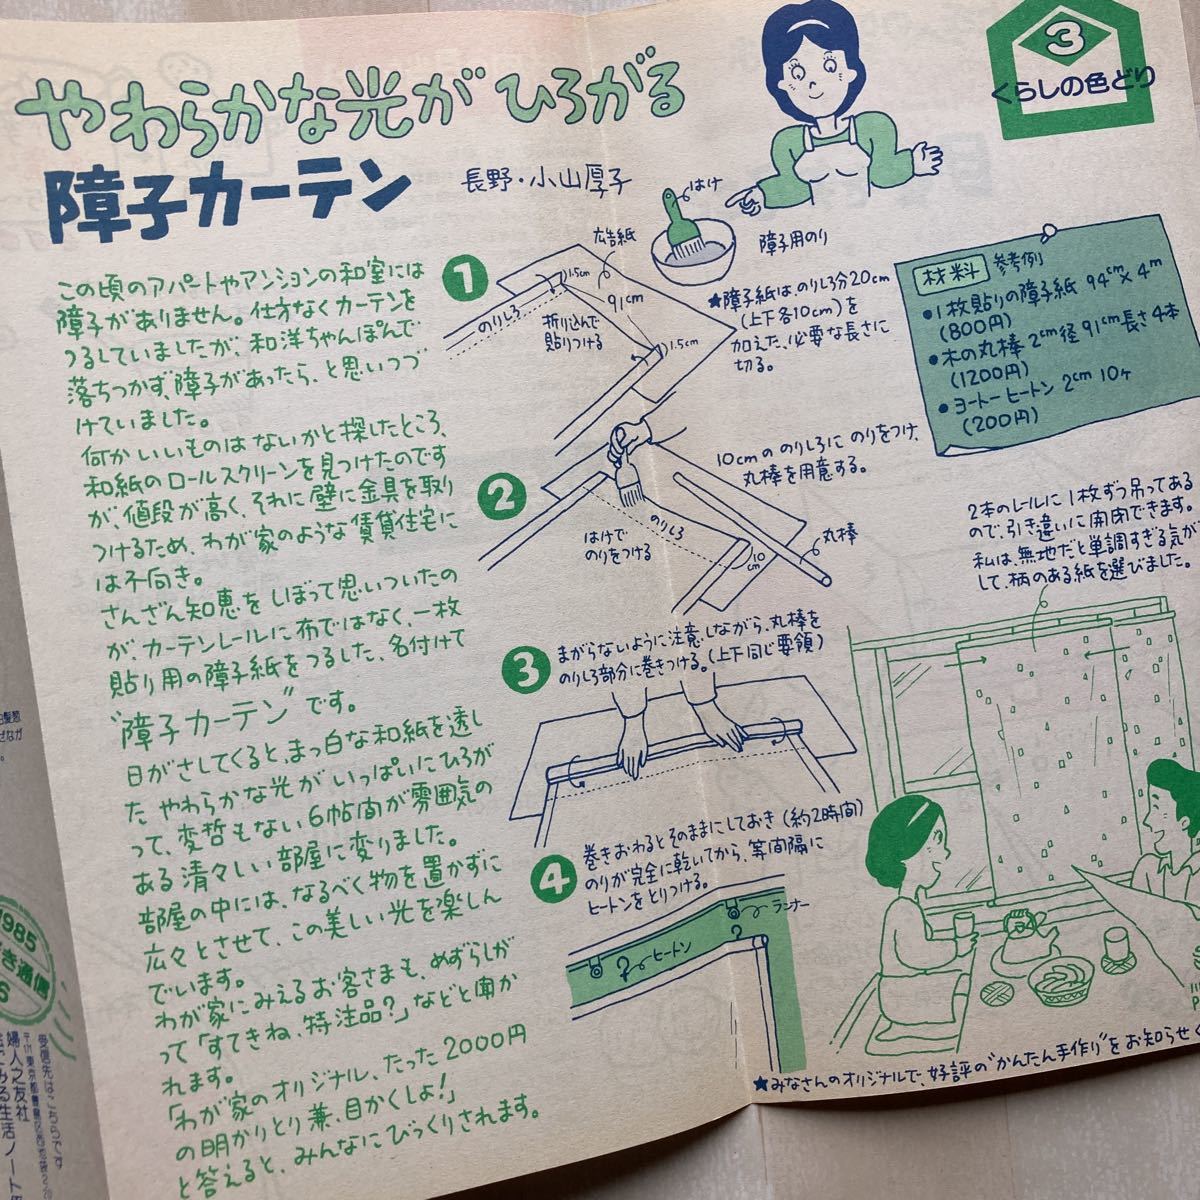 やわらかな光がひろがる
障子カーテン
長野・小山厚子
3
くらしの色どり
この頃のアパートやマンションの和室には
障子がありません。仕方なくカーテンを
つるしていましたが、和洋ちゃんぽんで
落ちつかず、障子があったら、と思いつづ
けていました。
何かいいものはないかと探したところ、
和紙のロールスクリーンを見つけたのです
が、値段が高く、それに壁に金具を取り
つけるため、わが家のような賃貸住宅に
は不向き。
さんざん知恵をしぼって思いついたの
が、カーテンレールに布ではなく、一枚
貼り用の障子紙をつるした、名付けて
"障子カーテン"です。
日がさしてくると、まっ白な和紙を透し
たやわらかな光がいっぱいにひろが
って、変哲もない6帖間が雰囲気の
ある清々しい部屋に変りました。
部屋の中には、なるべく物を置かずに
広々とさせて、この美しい光を楽しん
でいます。
わが家にみえるお客さまも、めずらしが
って「すてきね、特注品?」などと聞か
れます。
「わが家のオリジナル、たった2000円
の明かりとり兼、目かくしよ!」
と答えると、みんなにびっくりされます。
はけ
障子用のり
1
広告紙
1.5cm
91cm
のりしろ
折り込んで
貼りつける
1.5cm
★障子紙は、のりしろ分20cm
(上下各10cm)を
加えた、必要な長さに
切る。
材料 参考例
●1枚貼りの障子紙 94cm×4m
(800円)
●木の丸棒 2cm径 91cm長さ4本
(1200円)
●ヨートーヒートン 2cm 10ヶ
(200円)
2
10cmののりしろにのりをつけ、
丸棒を用意する。
はけで
のりをつける
のりしろ
10cm
丸棒
3
まがらないように注意しながら、丸棒を
のりしろ部分に巻きつける。(上下同じ要領)
4
巻きおわるとそのままにしておき(約2時間)
のりが完全に乾いてから、等間隔に
ヒートンをとりつける。
ランナー
ヒートン
2本のレールに1枚ずつ吊ってある
ので、引き違いに開閉できます。
私は、無地だと単調すぎる気が
して、柄のある紙を選びました。
★みなさんのオリジナルで、好評の"かんたん手作り"をお知らせく
1985
き通信
受信先はこちらです
婦人之友社
でみる生活ノート